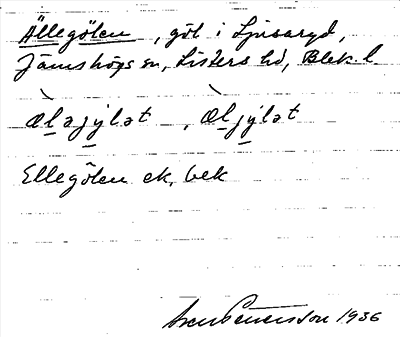 Ällegölen, göl i Ljusaryd,
Jämshögs sn, Listers hd, Blek. l
æləjýlət, æljýlət
Ellegölen ek, bek
Svensson 1936